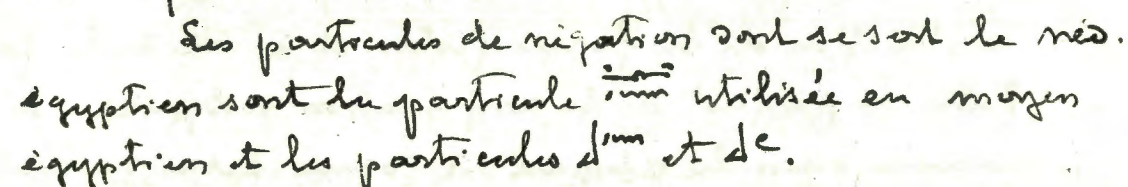 Les particules de négation dont se sert le néo.
égyptien sont la particule utilisée en moyen
égyptien et les particules et